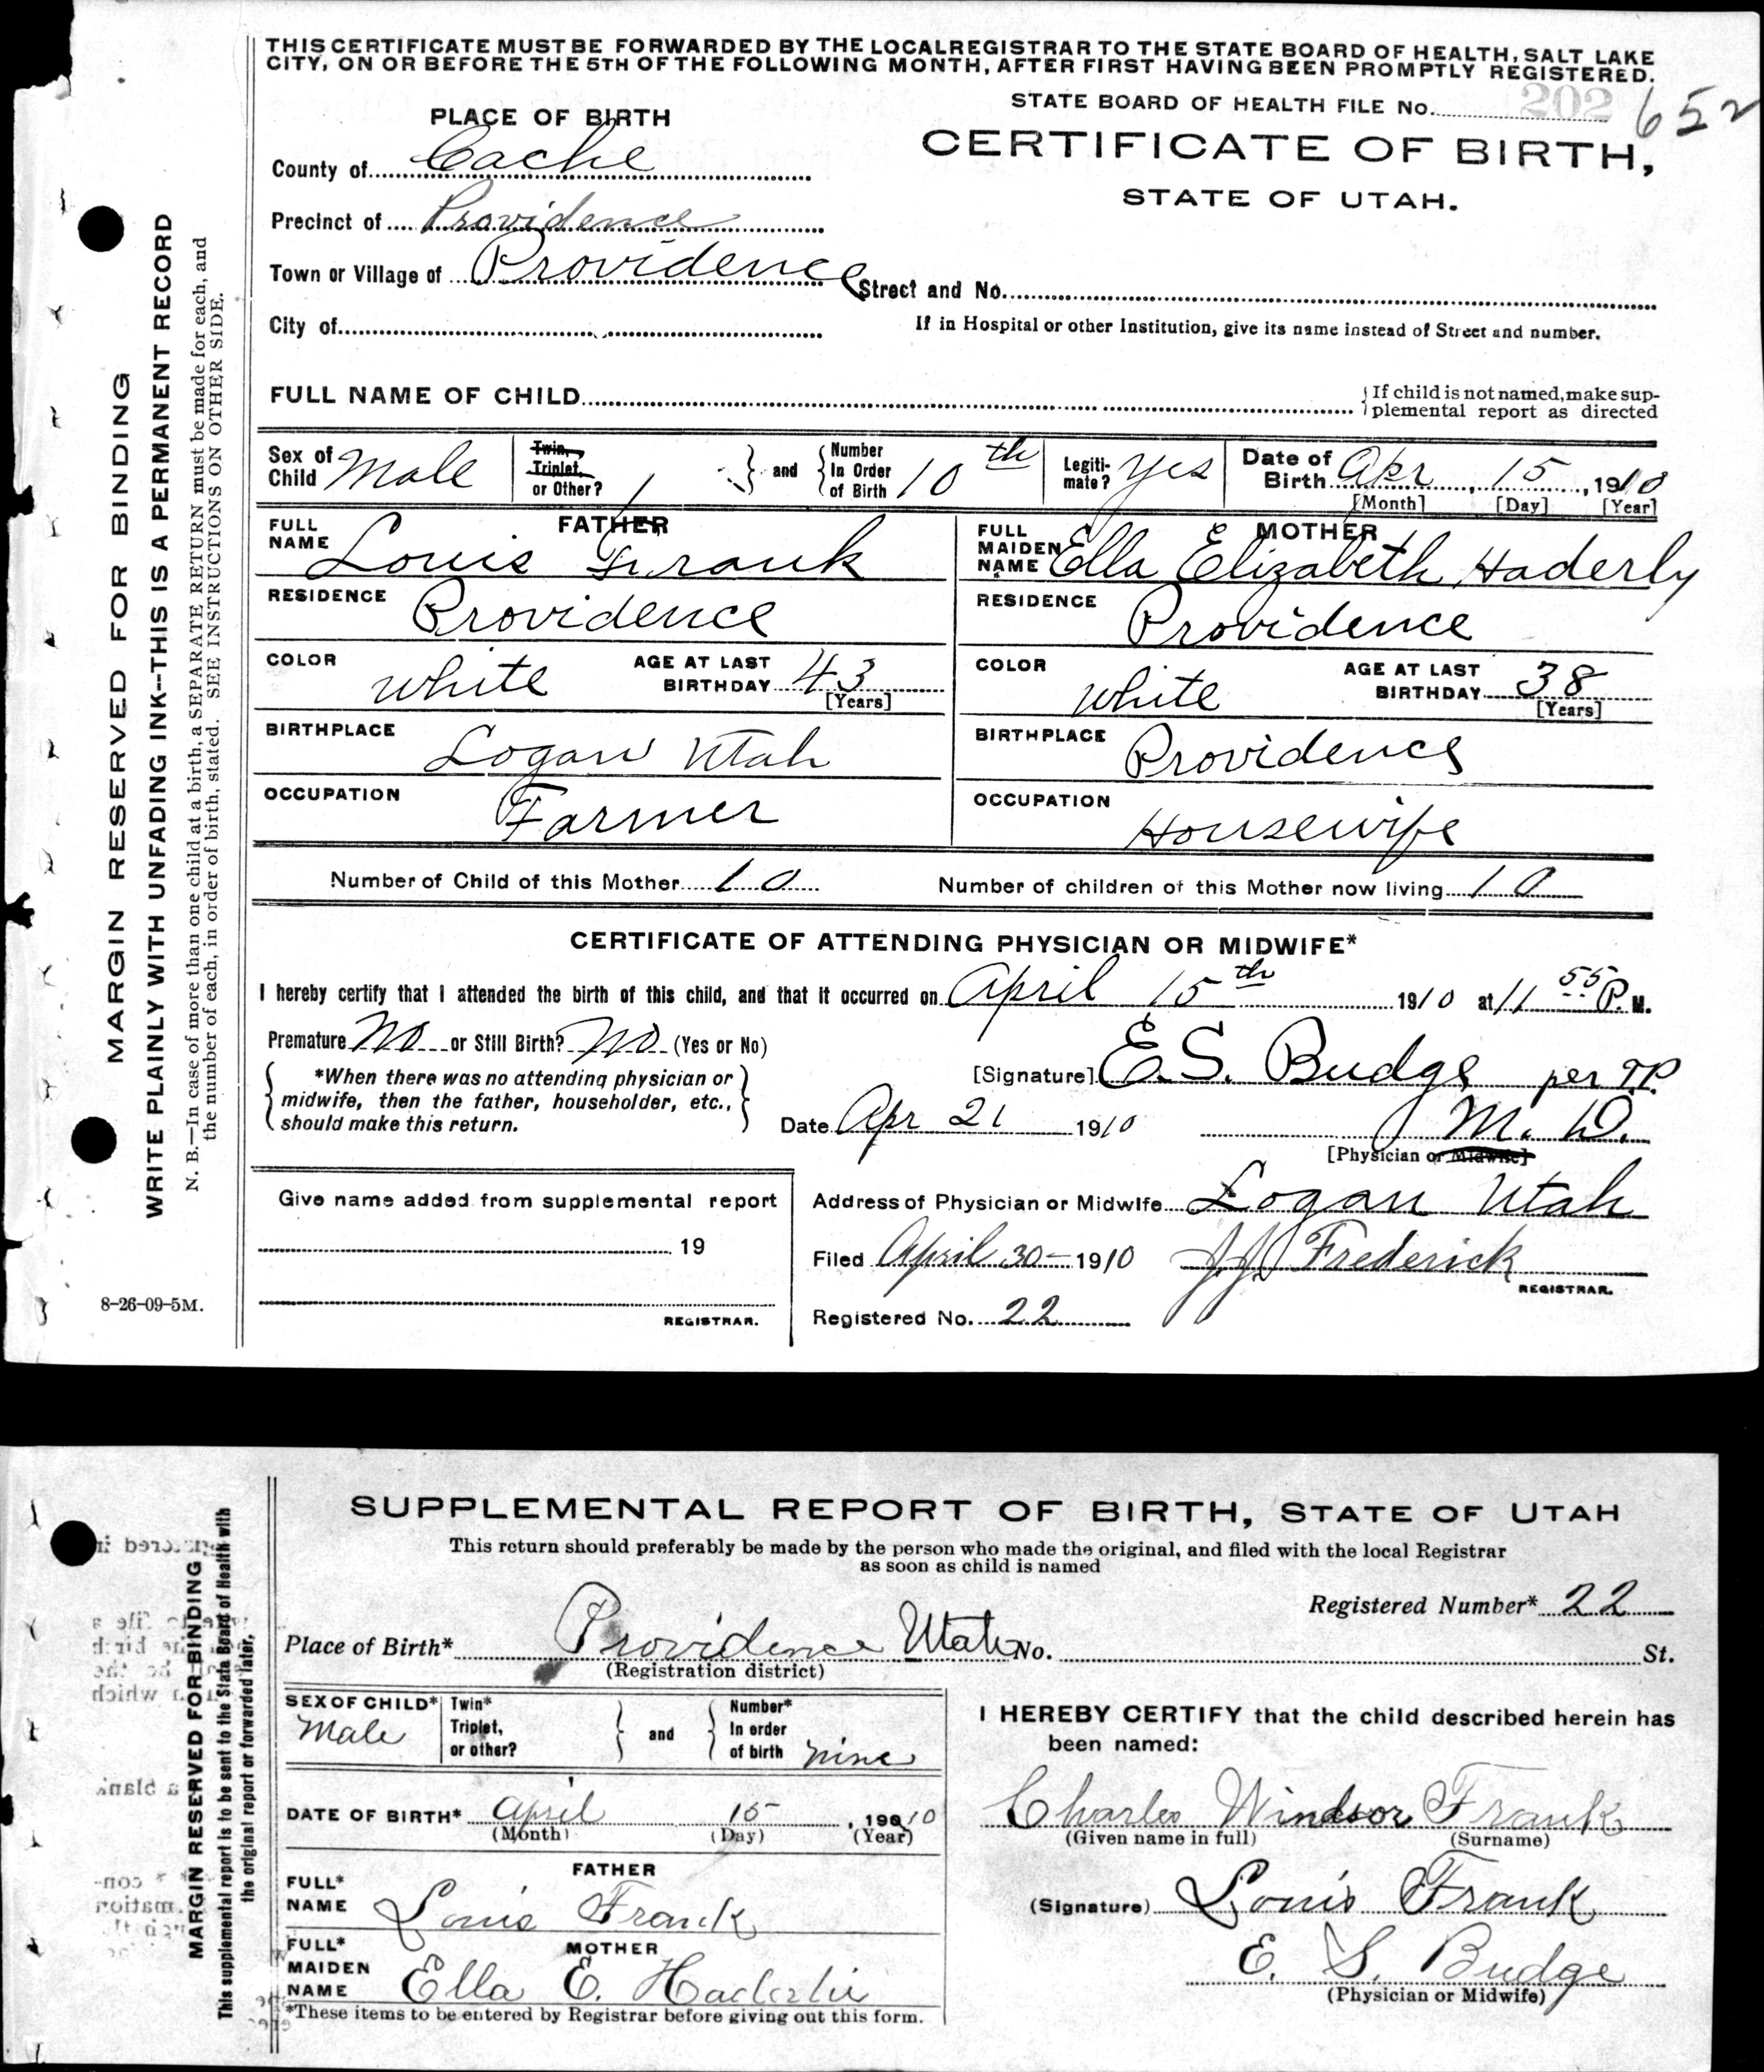 THIS CERTIFICATE MUST BE FORWARDED BY THE LOCAL REGISTRAR TO THE STATE BOARD OF HEALTH, SALT LAKE
CITY, ON OR BEFORE THE 5TH OF THE FOLLOWING MONTH, AFTER FIRST HAVING BEEN PROMPTLY REGISTERED.
STATE BOARD OF HEALTH FILE No. 202 652
PLACE OF BIRTH
CERTIFICATE OF BIRTH,
STATE OF UTAH.
County of Cache
Precinct of Providence
Town or Village of Providence Street and No.
City of
If in Hospital or other Institution, give its name instead of Street and number.
FULL NAME OF CHILD
If child is not named, make sup-
plemental report as directed
Sex of Child Male
Twin, Triplet, or Other? 1 and Number In Order of Birth 10th
Legiti-mate? Yes
Date of Birth Apr 15, 1910
[Month] [Day] [Year]
FATHER
FULL NAME Louis Frank
RESIDENCE Providence
COLOR White AGE AT LAST BIRTHDAY 43
[Years]
BIRTHPLACE Logan Utah
OCCUPATION Farmer
MOTHER
FULL MAIDEN NAME Ella Elizabeth Haderly
RESIDENCE Providence
COLOR White AGE AT LAST BIRTHDAY 38
[Years]
BIRTHPLACE Providence
OCCUPATION Housewife
Number of Child of this Mother 10 Number of children of this Mother now living 10
CERTIFICATE OF ATTENDING PHYSICIAN OR MIDWIFE*
I hereby certify that I attended the birth of this child, and that it occurred on April 15th 1910 at 11 55 P. M.
Premature No or Still Birth? No (Yes or No)
*When there was no attending physician or
midwife, then the father, householder, etc.,
should make this return.
[Signature] E. S. Budge per T.P.
Date Apr 21 1910 M. D.
[Physician or Midwife]
Give name added from supplemental report
19
REGISTRAR.
Address of Physician or Midwife Logan Utah
Filed April 30- 1910 J.J. Frederick
REGISTRAR.
Registered No. 22
MARGIN RESERVED FOR BINDING
WRITE PLAINLY WITH UNFADING INK--THIS IS A PERMANENT RECORD
N. B.—In case of more than one child at a birth, a SEPARATE RETURN must be made for each, and
the number of each, in order of birth, stated. SEE INSTRUCTIONS ON OTHER SIDE.
8-26-09-5M.
SUPPLEMENTAL REPORT OF BIRTH, STATE OF UTAH
This return should preferably be made by the person who made the original, and filed with the local Registrar
as soon as child is named
Registered Number* 22
Place of Birth* Providence Utah No. St.
(Registration district)
SEX OF CHILD* Male
Twin* Triplet, or other? and Number* In order of birth nine
DATE OF BIRTH* April 15, 190 10
(Month) (Day) (Year)
FATHER
FULL* NAME Louis Frank
MOTHER
FULL* MAIDEN NAME Ella E. Haderlie
*These items to be entered by Registrar before giving out this form.
I HEREBY CERTIFY that the child described herein has
been named:
Charles Windsor Frank
(Given name in full) (Surname)
(Signature) Louis Frank
E. S. Budge
(Physician or Midwife)
MARGIN RESERVED FOR BINDING
This supplemental report is to be sent to the State Board of Health with
the original report or forwarded later.